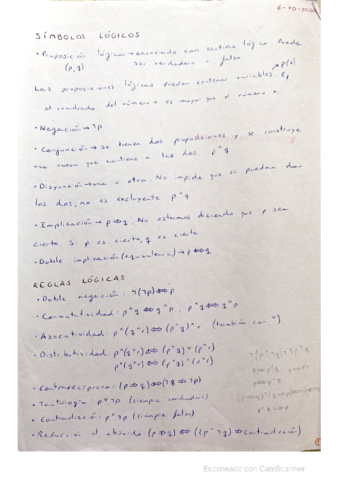 6-10-2020
SÍMBOLOS LÓGICOS
• Proposición lógica → enunciado con sentido lógico. Puede
(p, q) ser verdadero o falso.
Las proposiciones lógicas pueden contener variables. Ej → p(n)
el cuadrado del número n es mayor que el número n.
• Negación → ¬p
• Conjunción → se tienen dos proposiciones y se construye
una nueva que contiene a las dos. p ^ q
• Disyunción → una u otra. No impide que se puedan dar
las dos, no es excluyente. p ˅ q
• Implicación → p ⇒ q. No estamos diciendo que p sea
cierto. Si p es cierto, q es cierto
• Doble implicación (equivalencia) → p ⇔ q
REGLAS LÓGICAS
• Doble negación: ¬(¬p) ⇔ p
• Conmutatividad: p ^ q ⇔ q ^ p, p ˅ q ⇔ q ˅ p
• Asociatividad: p ^ (q ^ r) ⇔ (p ^ q) ^ r (también con v)
• Distributividad: p ^ (q ˅ r) ⇔ (p ^ q) ˅ (p ^ r)
p ˅ (q ^ r) ⇔ (p ˅ q) ^ (p ˅ r)
• Contrarrecíproco: (p ⇒ q) ⇔ (¬q ⇒ ¬p)
• Tautología: p ˅ ¬p (siempre verdadero)
• Contradicción: p ^ ¬p (siempre falso)
• Reducción al absurdo: (p ⇒ q) ⇔ ((p ^ ¬q) ⇒ Contradicción)
Escaneado con CamScanner